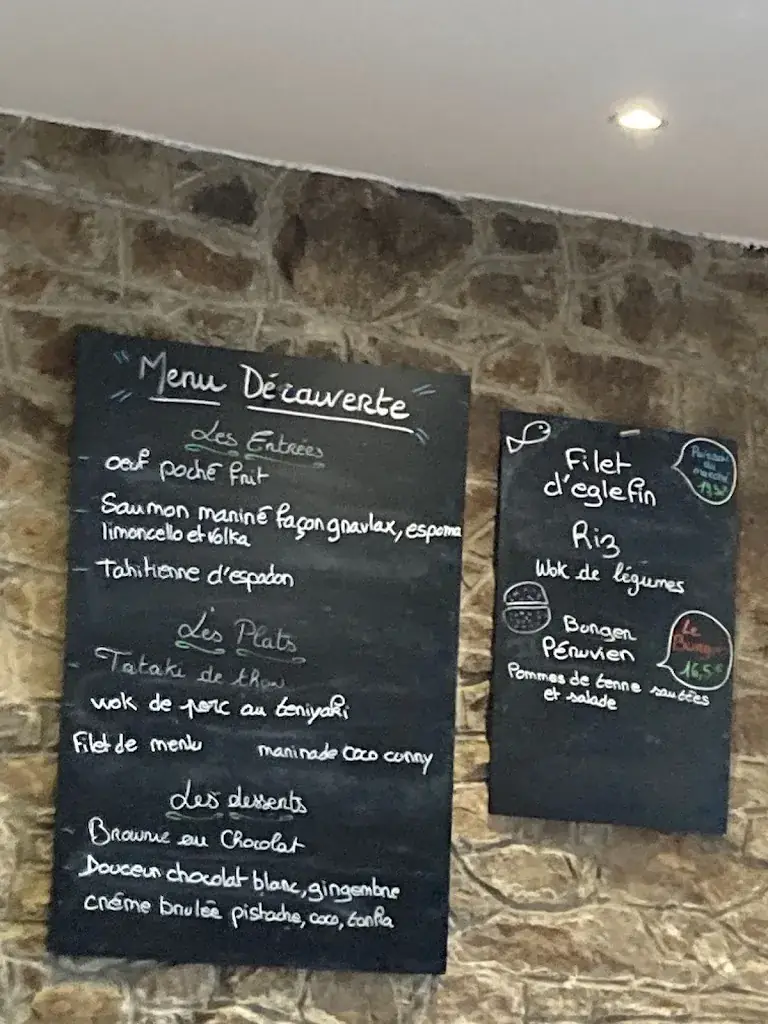 " Menu Découverte "
Les Entrées
- oeuf poché frit
- Saumon mariné façon gravlax, espuma
limoncello et vodka
- Tahitienne d'espadon
Les Plats
- Tataki de thon
wok de porc au teriyaki
Filet de merlu marinade coco curry
Les desserts
- Brownie au Chocolat
Douceur chocolat blanc, gingembre
crème brulée pistache, coco, tonka
Filet
d'eglefin
Poisson
du
marché
Riz
Wok de légumes
Burger
Péruvien
Le
Burger
16,5€
Pommes de terre sautées
et salade